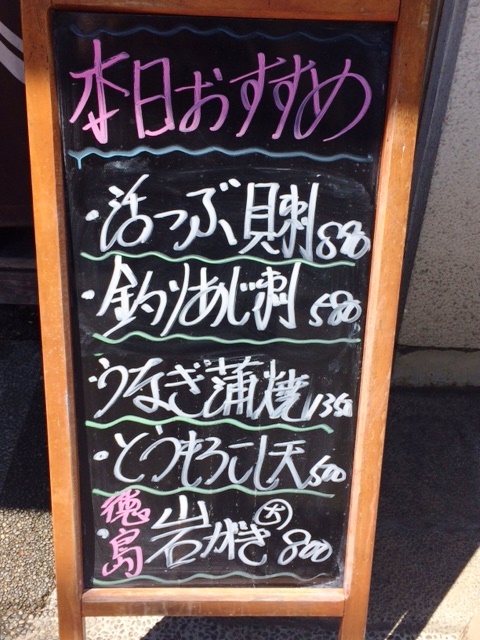 本日おすすめ
・活つぶ貝刺 880
・釣りあじ刺 580
・うなぎ蒲焼 1350
・とうもろこし天 500
・徳島 岩がき 大 800